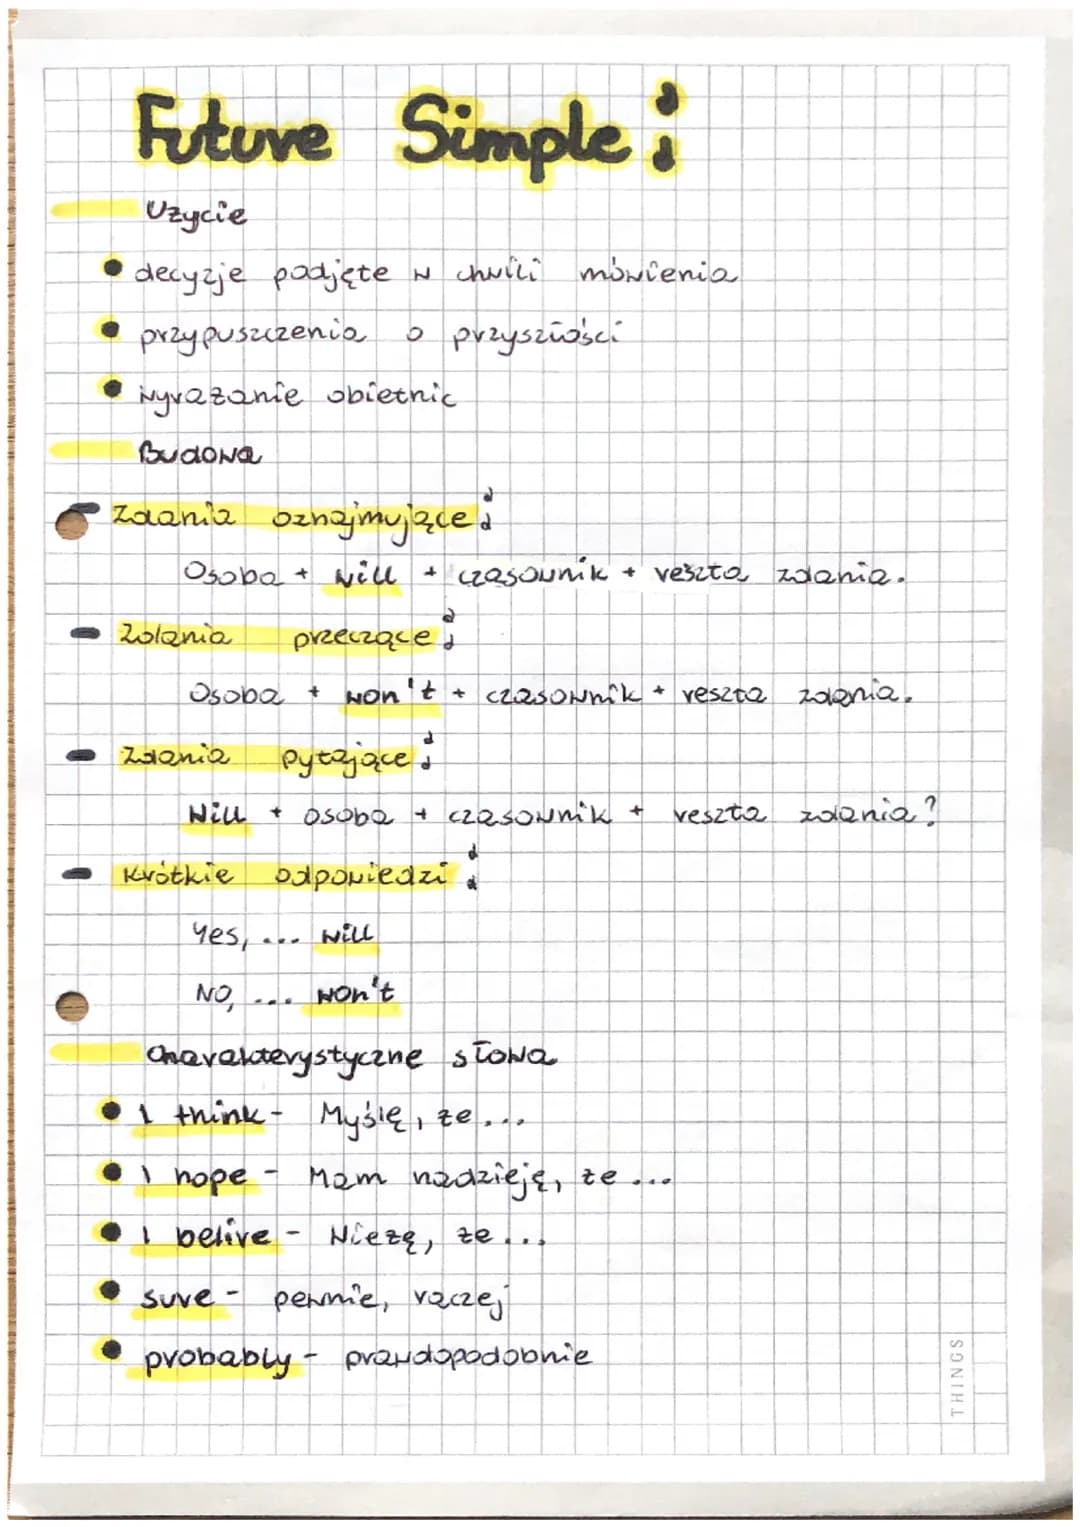 Future Simple:
Użycie
• decyzje podjęte w chwili mówienia
• przypuszczenia o przyszłości
• wyrażanie obietnic
Budowa
- Zdania oznajmujące:
Osoba + will + czasownik + reszta zdania.
- Zdania przeczące:
Osoba + won't + czasownik + reszta zdania.
- Zdania pytające:
Will + osoba + czasownik + reszta zdania?
- Krótkie odpowiedzi:
Yes, ... will
No, ... won't
Charakterystyczne słowa
• I think - Myślę, że...
• I hope - Mam nadzieję, że...
• I belive - Wierzę, że...
• sure - pewnie, raczej
• probably - prawdopodobnie
THINGS